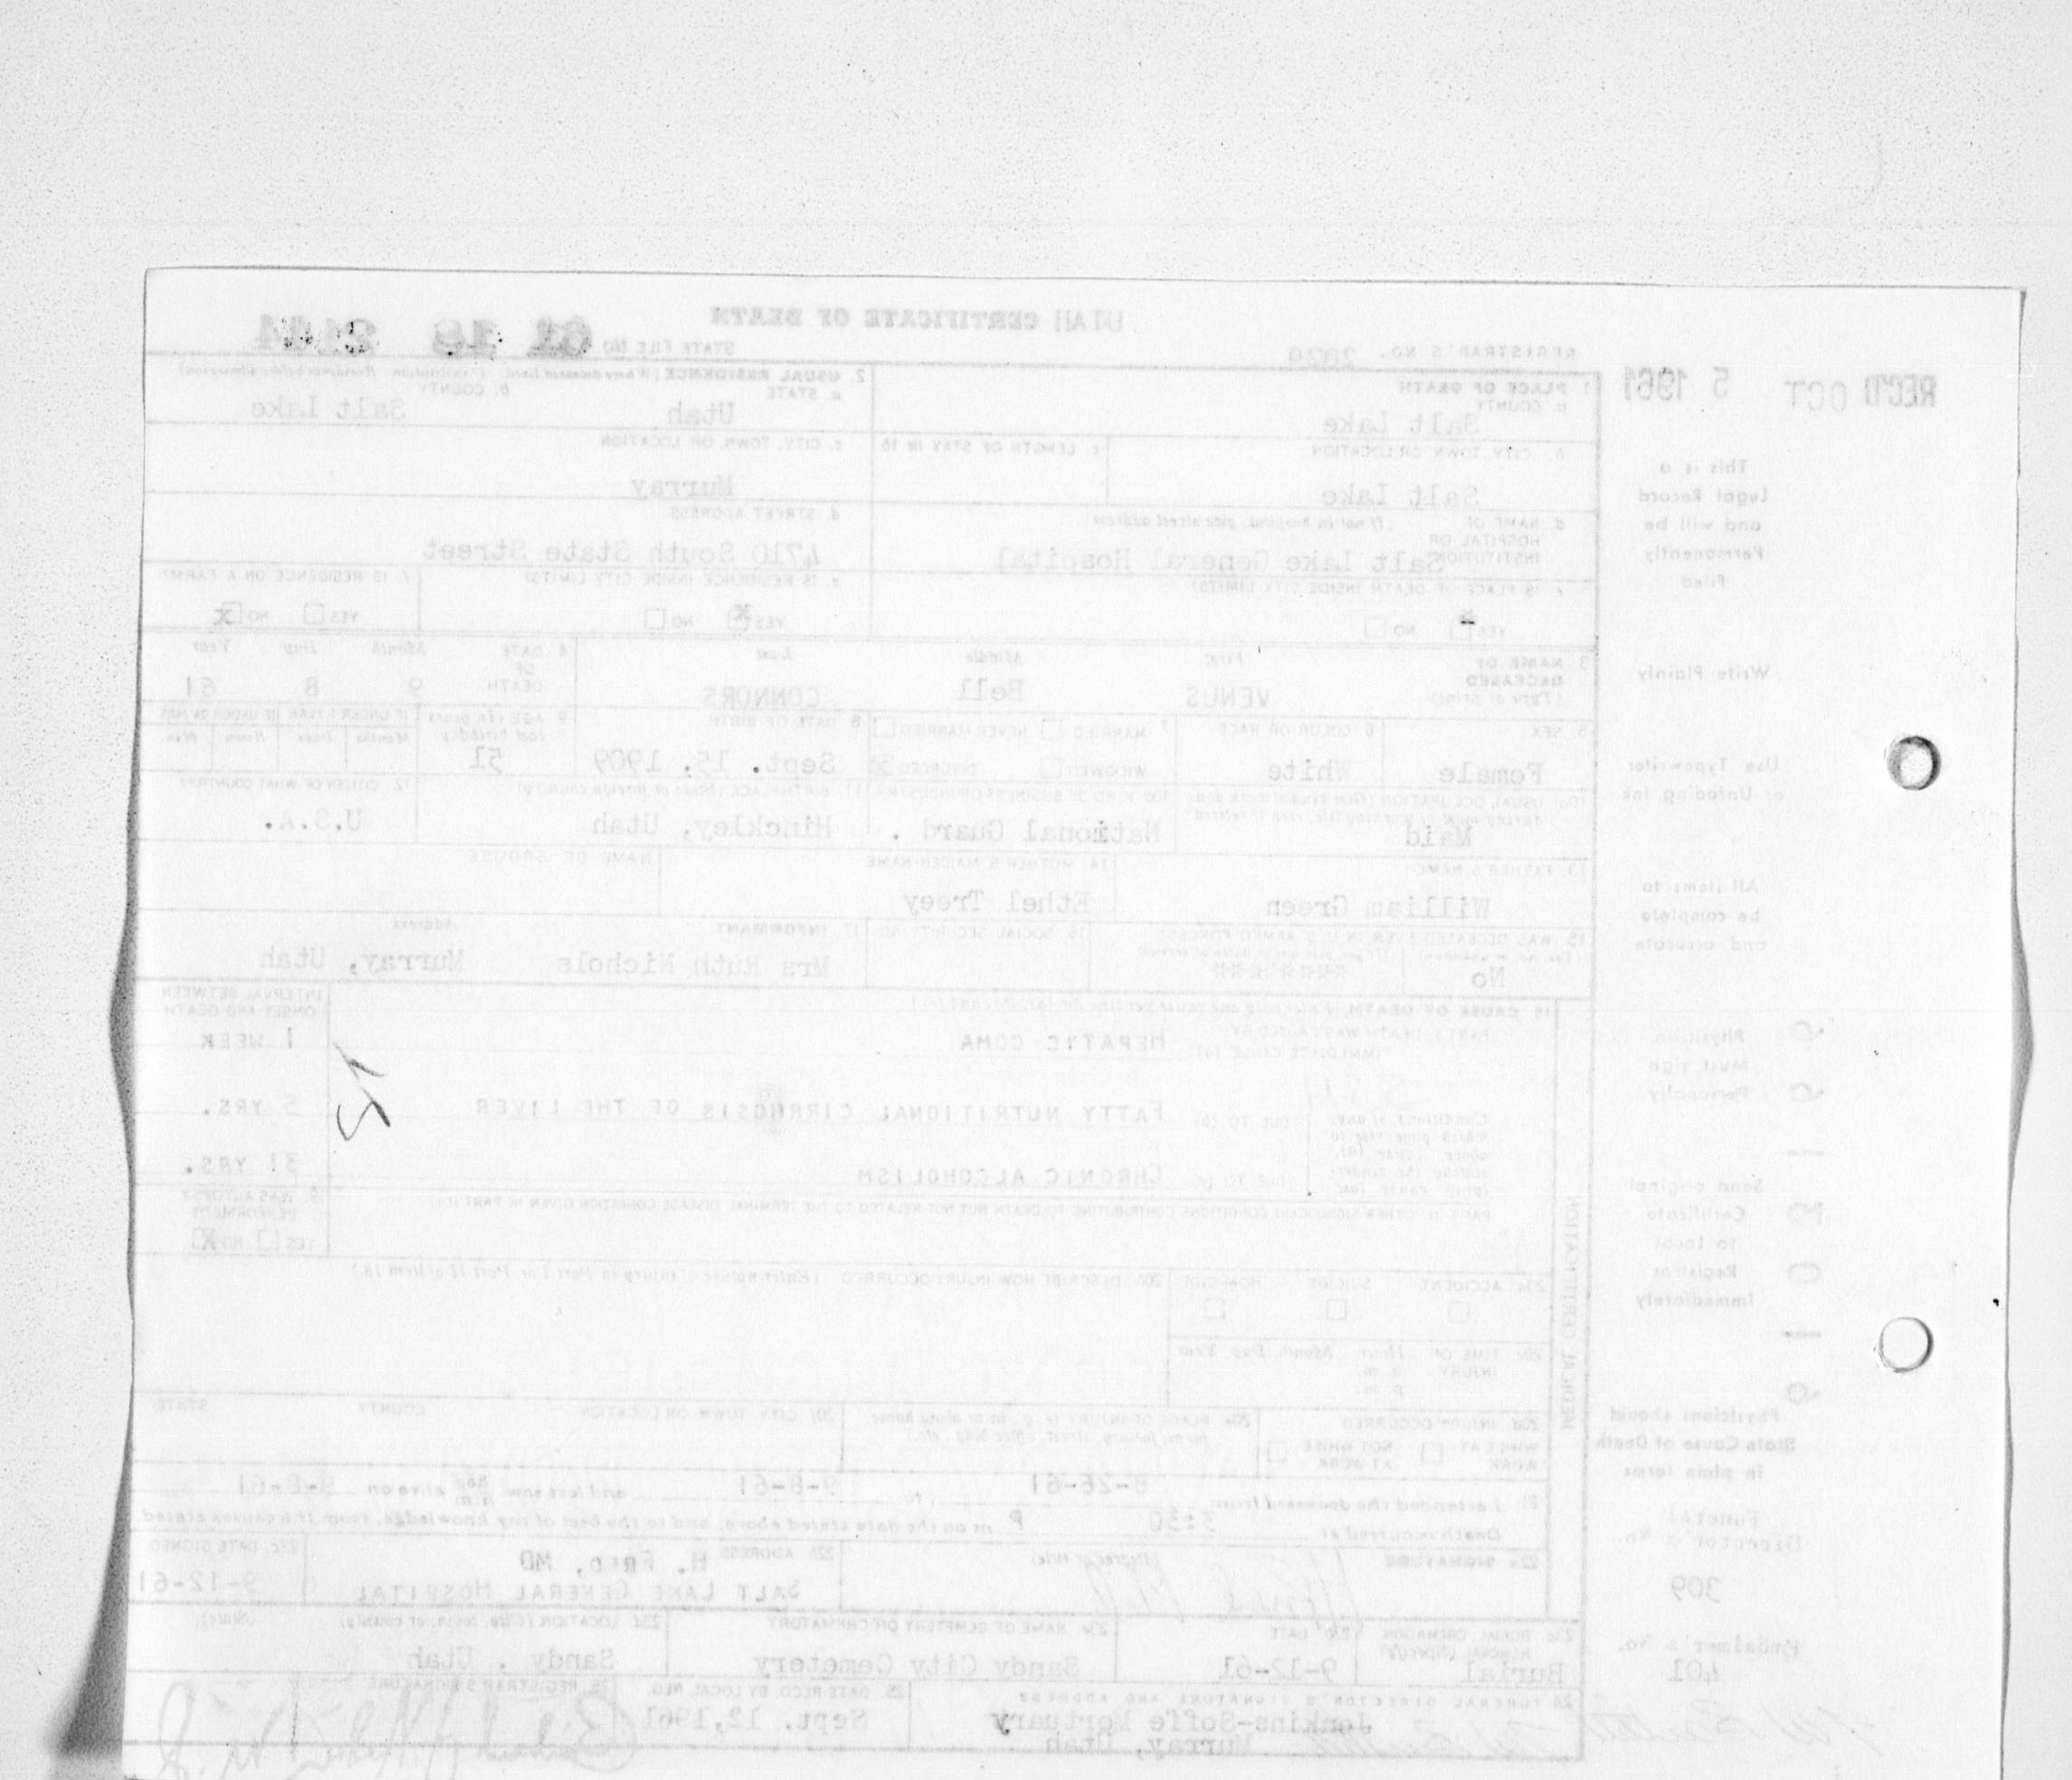 UTAH CERTIFICATE OF DEATH
STATE FILE NO. 61 18 2144
REGISTRAR'S NO. 2020
REC'D OCT 5 1961
1. PLACE OF DEATH
a. COUNTY
Salt Lake
2. USUAL RESIDENCE (Where deceased lived. If institution: Residence before admission)
a. STATE
Utah
b. COUNTY
Salt Lake
b. CITY, TOWN, OR LOCATION
Salt Lake
c. LENGTH OF STAY IN 1b
c. CITY, TOWN, OR LOCATION
Murray
d. NAME OF HOSPITAL OR INSTITUTION (If not in hospital, give street address)
Salt Lake General Hospital
d. STREET ADDRESS
4710 South State Street
e. IS PLACE OF DEATH INSIDE CITY LIMITS?
YES x NO
e. IS RESIDENCE INSIDE CITY LIMITS?
YES x NO
f. IS RESIDENCE ON A FARM?
YES NO x
3. NAME OF DECEASED (Type or print)
First Middle Last
VENUS Bell CONNORS
4. DATE OF DEATH
Month Day Year
9 8 61
5. SEX
Female
6. COLOR OR RACE
White
7. MARRIED NEVER MARRIED
WIDOWED DIVORCED x
8. DATE OF BIRTH
Sept. 15, 1909
9. AGE (In years last birthday)
51
IF UNDER 1 YEAR IF UNDER 24 HRS.
Months Days Hours Min.
10a. USUAL OCCUPATION (Give kind of work done during most of working life, even if retired)
Maid
10b. KIND OF BUSINESS OR INDUSTRY
National Guard .
11. BIRTHPLACE (State or foreign country)
Hinckley, Utah
12. CITIZEN OF WHAT COUNTRY?
U.S.A.
13. FATHER'S NAME
William Green
14. MOTHER'S MAIDEN NAME
Ethel Treey
NAME OF SPOUSE
15. WAS DECEASED EVER IN U. S. ARMED FORCES?
(Yes, no, or unknown) (If yes, give war or dates of service)
No
16. SOCIAL SECURITY NO.
17. INFORMANT Address
Mrs Ruth Nichols Murray, Utah
18. CAUSE OF DEATH (Enter only one cause per line for (a), (b), and (c).)
INTERVAL BETWEEN ONSET AND DEATH
PART I. DEATH WAS CAUSED BY:
IMMEDIATE CAUSE (a) HEPATIC COMA 1 WEEK
Conditions, if any, which gave rise to above cause (a), stating the underlying cause last
DUE TO (b) FATTY NUTRITIONAL CIRRHOSIS OF THE LIVER 5 YRS.
DUE TO (c) CHRONIC ALCOHOLISM 31 YRS.
PART II. OTHER SIGNIFICANT CONDITIONS CONTRIBUTING TO DEATH BUT NOT RELATED TO THE TERMINAL DISEASE CONDITION GIVEN IN PART I(a)
19. WAS AUTOPSY PERFORMED?
YES NO X
20a. ACCIDENT SUICIDE HOMICIDE
20b. DESCRIBE HOW INJURY OCCURRED. (Enter nature of injury in Part I or Part II of item 18.)
20c. TIME OF INJURY Hour Month, Day, Year
a. m.
p. m.
20d. INJURY OCCURRED
WHILE AT WORK NOT WHILE AT WORK
20e. PLACE OF INJURY (e. g., in or about home, farm, factory, street, office bldg., etc.)
20f. CITY, TOWN, OR LOCATION COUNTY STATE
21. I attended the deceased from 8-26-61, to 9-8-61 and last saw her/him alive on 9-8-61
Death occurred at 3:30 P m on the date stated above, and to the best of my knowledge, from the causes stated.
22a. SIGNATURE (Degree or title)
22b. ADDRESS
H. FRED, MD
SALT LAKE GENERAL HOSPITAL
22c. DATE SIGNED
9-12-61
23a. BURIAL, CREMATION, REMOVAL (Specify)
Burial
23b. DATE
9-12-61
23c. NAME OF CEMETERY OR CREMATORY
Sandy City Cemetery
23d. LOCATION (City, town, or county) (State)
Sandy . Utah
24. FUNERAL DIRECTOR'S SIGNATURE AND ADDRESS
Jenkins-Soffe Mortuary
Murray, Utah
25. DATE RECD. BY LOCAL REG.
Sept. 12, 1961
26. REGISTRAR'S SIGNATURE
MEDICAL CERTIFICATION
This is a
Legal Record
and will be
Permanently
Filed
Write Plainly
Use Typewriter
or Unfading Ink
All items to
be complete
and accurate
Physician
Must sign
Personally
Send original
Certificate
to Local
Registrar
Immediately
Physicians should
State Cause of Death
in plain terms
Funeral
Director's No.
309
Embalmer's No.
401